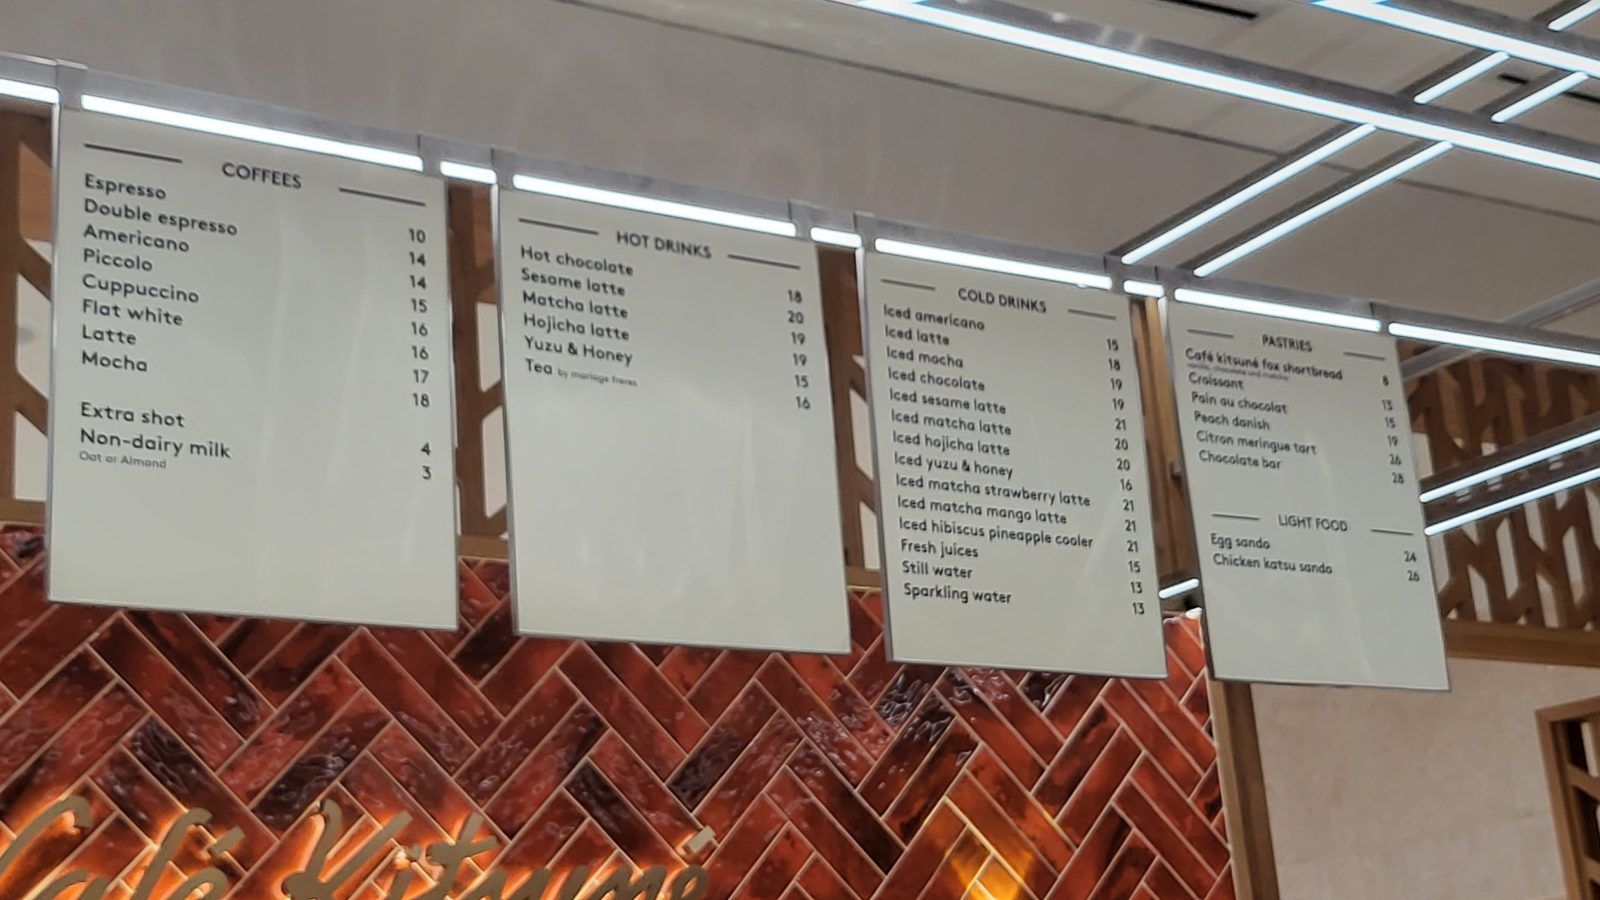 COFFEES
Espresso 10
Double espresso 14
Americano 14
Piccolo 15
Cuppuccino 16
Flat white 16
Latte 17
Mocha 18
Extra shot 4
Non-dairy milk 3
Oat or Almond
HOT DRINKS
Hot chocolate 18
Sesame latte 20
Matcha latte 19
Hojicha latte 19
Yuzu & Honey 15
Tea by mariage freres 16
COLD DRINKS
Iced americano 15
Iced latte 18
Iced mocha 19
Iced chocolate 19
Iced sesame latte 21
Iced matcha latte 20
Iced hojicha latte 20
Iced yuzu & honey 16
Iced matcha strawberry latte 21
Iced matcha mango latte 21
Iced hibiscus pineapple cooler 21
Fresh juices 15
Still water 13
Sparkling water 13
PASTRIES
Café kitsuné fox shortbread 8
vanilla, chocolate and matcha
Croissant 13
Pain au chocolat 15
Peach danish 19
Citron meringue tart 26
Chocolate bar 28
LIGHT FOOD
Egg sando 24
Chicken katsu sando 26
Café Kitsuné